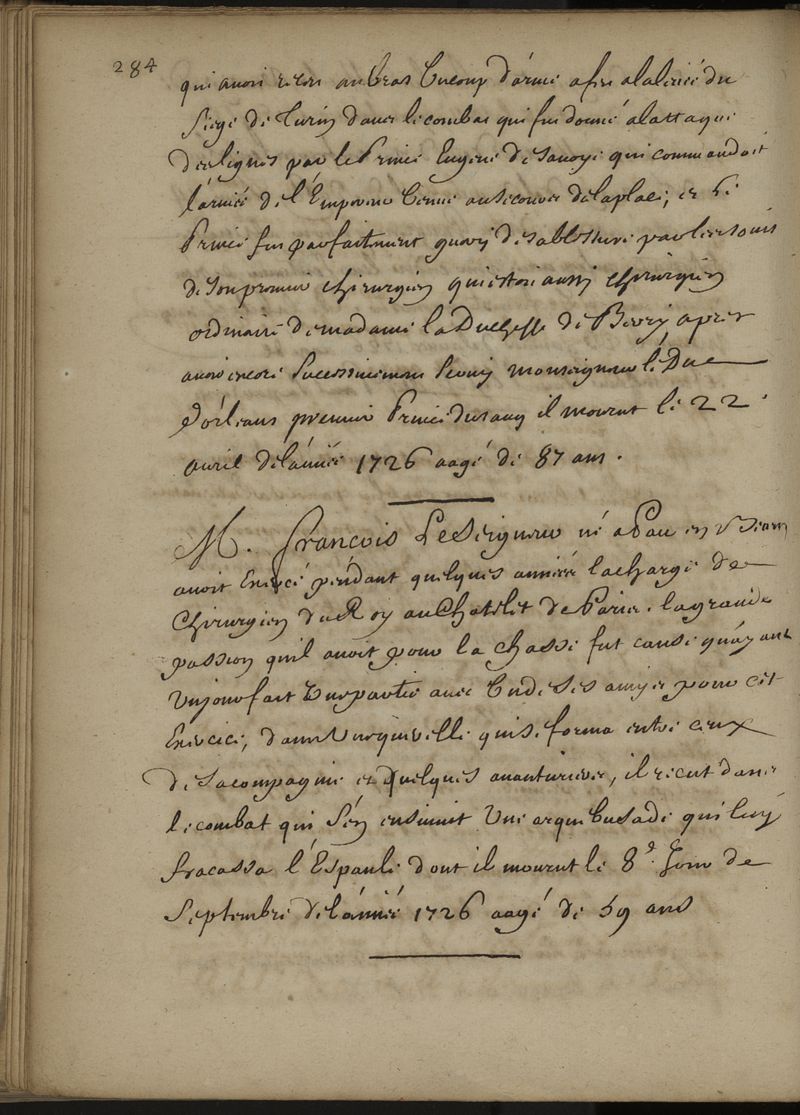 284
qui avoit receu au bras Un coup d'arme a feu a la levée du
Siege de Turin dans le combat qui fut donné a lattaque
des lignes par le Prince Eugene de Savoye qui commandoit
l'armée de l'Empereur Venue au secours de la place; et ce
Prince fut parfaitement guery de sa blessure par les soins
de son premier chirurgien qui estoit aussy chirurgien
ordinaire de madame la Duchesse de Berry, apres
avoir encore successivement servy monseigneur le Duc
d'orleans premier Prince du sang il mourut le 22
avril de l'année 1726 aagé de 87 ans.
M. françois Le Seigneur né a Pau en Bearn
avoit Exercé pendant quelques années la charge de
chirurgien du Roy au Chatelet de Paris. la grande
passion quil avoit pour la chasse fut cause qu'ayant
Un jour fait Une partie avec Un de ses amys pour cet
Exercice, dans Une querelle qui se forma entre ceux
de sa compagnie et quelques avanturiers, il receut dans
le combat qui s'en ensuivit Une arquebusade qui luy
fracassa l'Espaule dont il mourut le 8e. Jour de
Septembre de l'année 1726 aagé de 59 ans